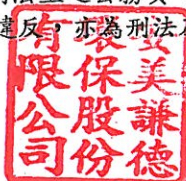 違反，亦為刑法
美謙德
環保股份
有限公司